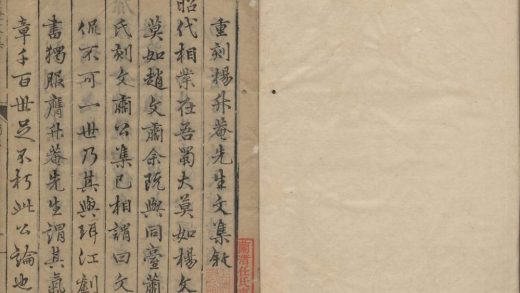 重刻楊升菴先生文集敘
昭代相業在吾蜀大莫如楊文
莫如趙文肅余既與同臺蕭
氏刻文肅公集已相謂曰文
侃不可一世乃其與珥江劄
書獨服膺升菴先生謂其氣
章千百世足不朽此公論也